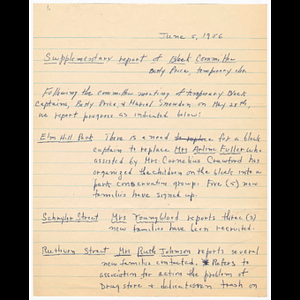 June 5, 1956
Supplementary report of Block Committee
Betty Price, temporary chr.
Following the committee meeting of temporary Block
Captains, Betty Price, & Muriel Snowden on May 28th,
we report progress as indicated below:
Elm Hill Park There is a need to replace for a block
captain to replace Mrs Arline Fuller who
assisted by Mrs. Cornelius Crawford has
organized the children on the block into a
park conservation group. Five (5) new
families have signed up.
Schuyler Street Mrs Youngblood reports three (3)
new families have been recruited.
Ruthven Street Mrs Ruth Johnson reports several
new families contacted. Refers to
association for action the problem of
Drug store & delicatessen trash on